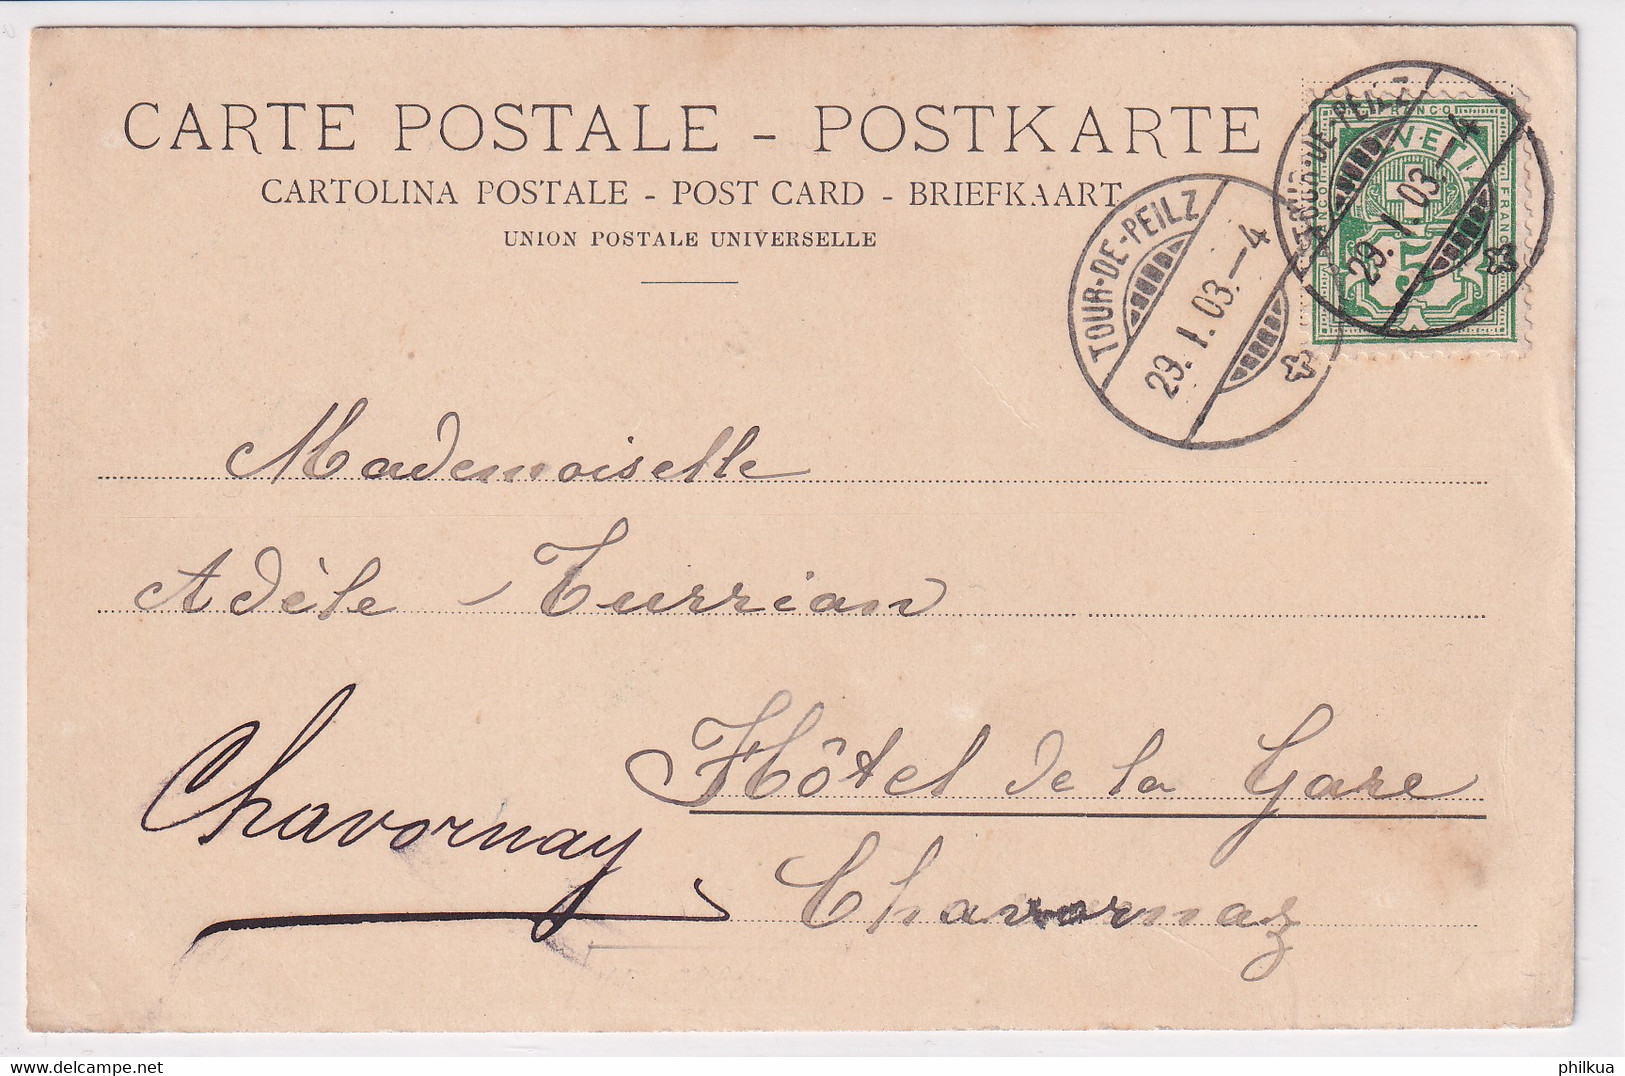 CARTE POSTALE - POSTKARTE
CARTOLINA POSTALE - POST CARD - BRIEFKAART
UNION POSTALE UNIVERSELLE
TOUR-DE-PEILZ
29. I. 03. - 4
TOUR-DE-PEILZ
29. I. 03. - 4
FRANCO
HELVETIA
FRANCO
FRANCO
5
Mademoiselle
Adèle Turrian
Hôtel de la Gare
Chavornay
Chavornaz
philkua
delcampe.net